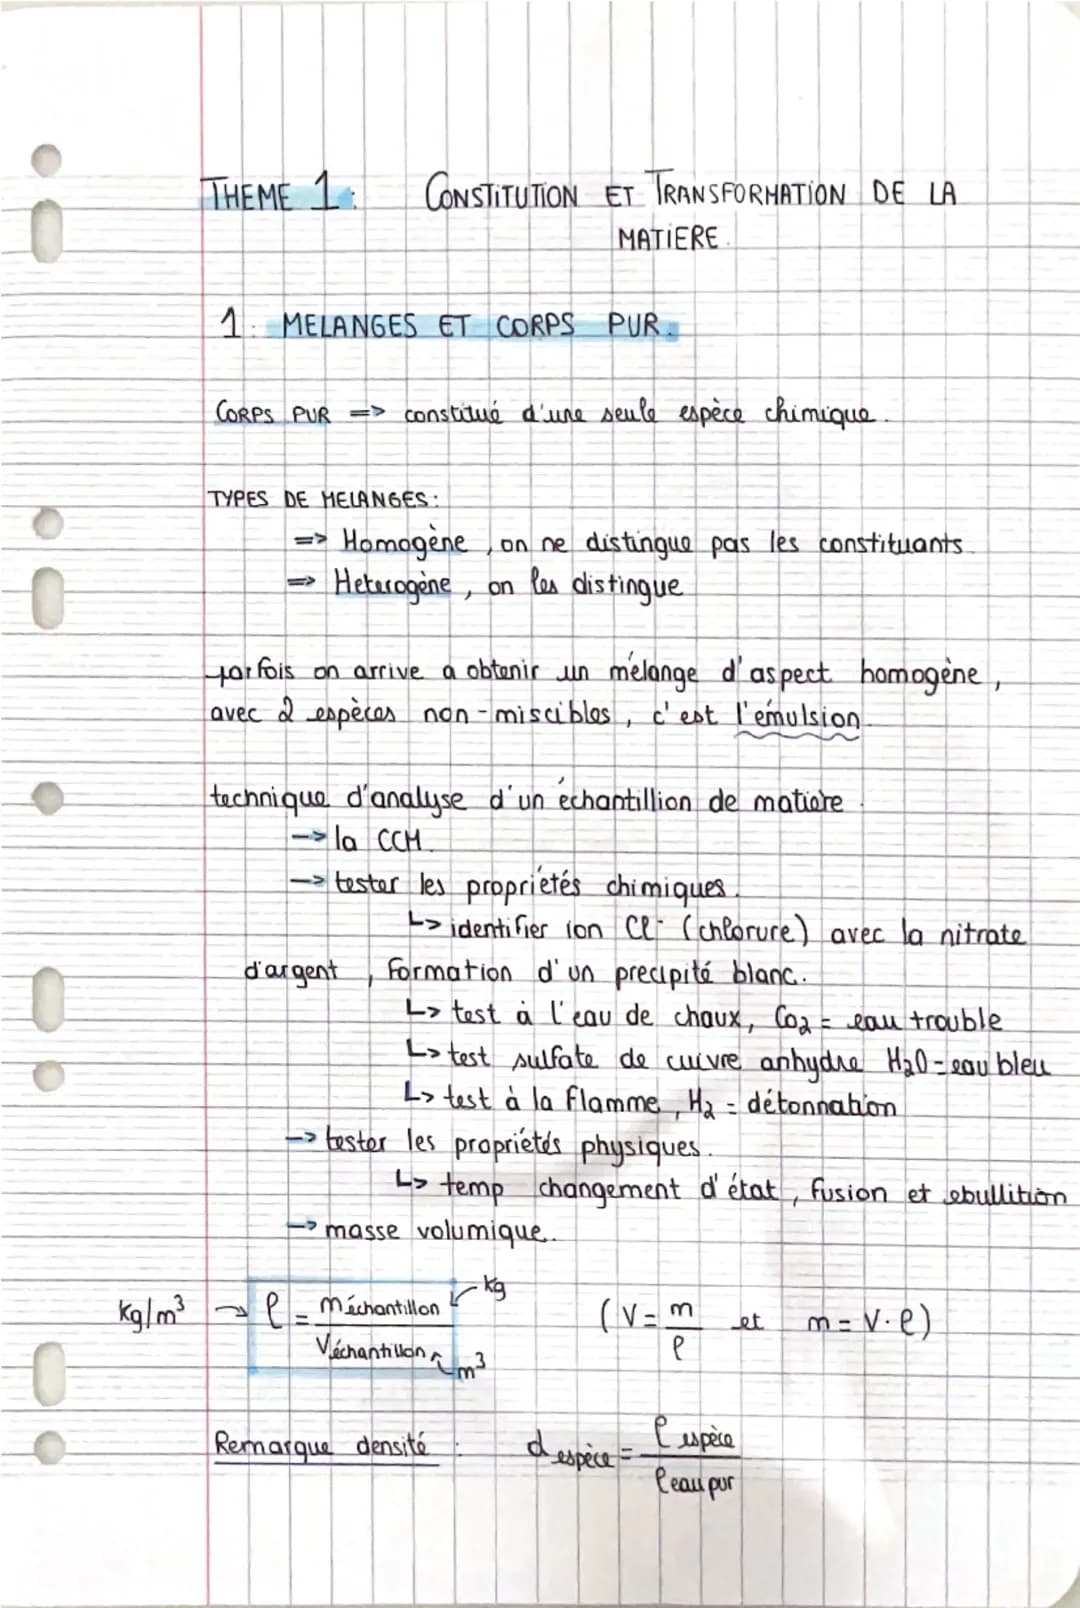 THEME 1: CONSTITUTION ET TRANSFORMATION DE LA
MATIERE.
1. MELANGES ET CORPS PUR.
CORPS PUR => constitué d'une seule espèce chimique.
TYPES DE MELANGES:
=> Homogène, on ne distingue pas les constituants.
=> Heterogène, on les distingue
parfois on arrive a obtenir un mélange d'aspect homogène,
avec 2 espèces non-miscibles, c'est l'émulsion.
technique d'analyse d'un échantillion de matiere.
-> la CCM.
-> tester les propriétés chimiques.
↳ identifier ion Cl⁻ (chlorure) avec la nitrate
d'argent, formation d'un precipité blanc.
↳ test à l'eau de chaux, Co₂ = eau trouble
↳ test sulfate de cuivre anhydre H₂O = eau bleu
↳ test à la flamme, H₂ = détonnation
-> tester les propriétés physiques.
↳ temp changement d'état, fusion et ebullition
-> masse volumique.
kg/m³ → ρ =méchantillon / Véchantillon ← kg m³ (V = m/ρ et m = V·ρ)
Remarque densité : d espèce = ρ espèce / ρ eau pur